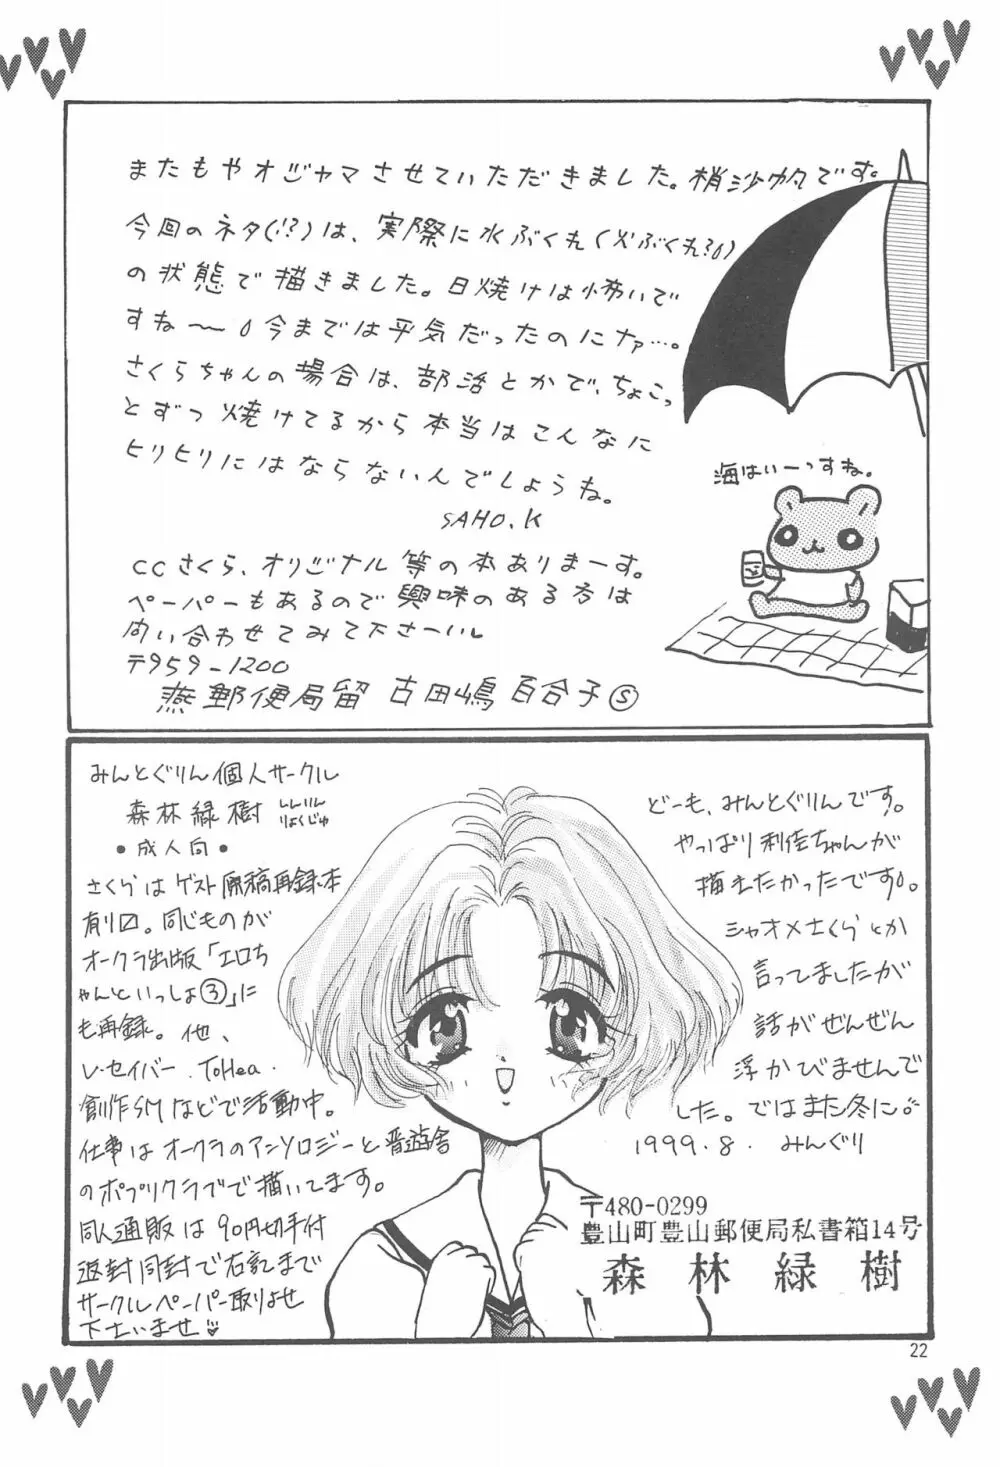 またもやオジャマさせていただきました。梢沙帆です。
今回のネタ(!?)は、実際に水ぶくれ(火ぶくれ?)
の状態で描きました。日焼けは怖いで
すね〜 今までは平気だったのにナァ…。
さくらちゃんの場合は、部活とかで、ちょこっ
とずつ焼けてるから本当はこんなに
ヒリヒリにはならないんでしょうね。
SAHO.K
海はいーっすね。
CCさくら、オリジナル等の本ありまーす。
ペーパーもあるので興味のある方は
問い合わせてみて下さーいし
〒959-1200
燕郵便局留 古田嶋百合子Ⓢ
みんとぐりん個人サークル
森林緑樹 しんりんりょくじゅ
・成人向・
さくらはゲスト原稿再録本
有り〼。同じものが
オークラ出版「エロち
ゃんといっしょ③」に
も再録。他、
レ・セイバー . ToHea.
創作SMなどで活動中。
仕事はオークラのアンソロジーと晋遊舎
のポプリクラブで描いてます。
同人通販は90円切手付
返封同封で右記まで
サークルペーパー取りよせ
下さいませ♡
どーも、みんとぐりんです。
やっぱり利佳ちゃんが
描きたかったです。
シャオメさくらとか
言ってましたが
話がぜんぜん
浮かびませんで
した。ではまた冬に
1999.8. みんぐり
〒480-0299
豊山町豊山郵便局私書箱14号
森林緑樹
22